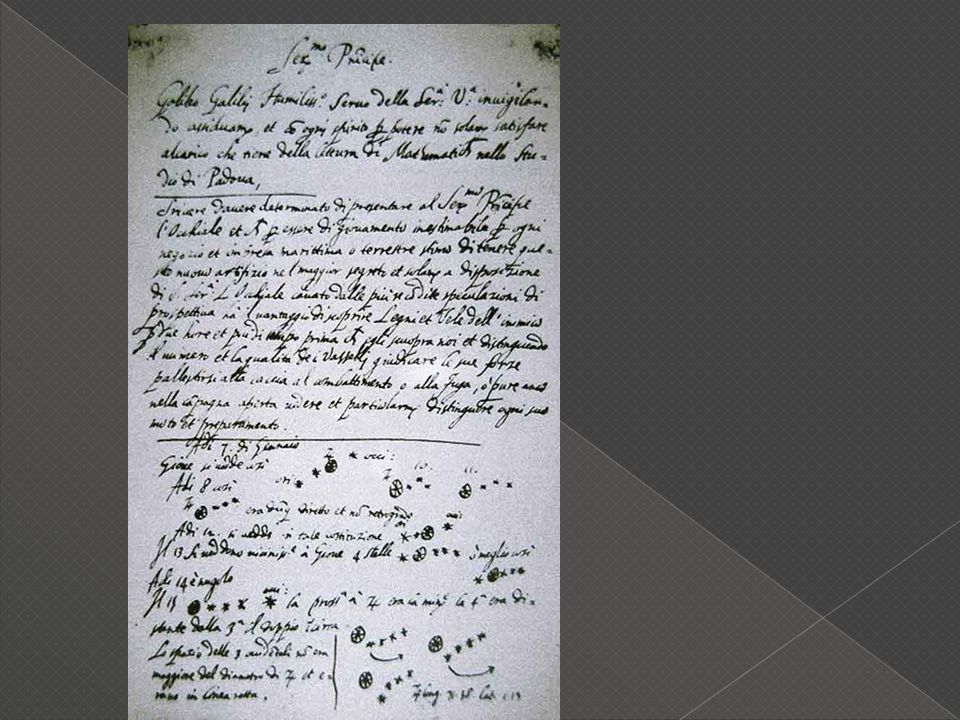 Ser.mo Principe.
Galileo Galilei Humiliss.o Servo della Ser.a V.a invigilan-
do assiduam.te et co ogni spirito p potere no solam.te satisfare
alcarico che tiene della lettura di Mathematica nello Stu-
dio di Padova,
Scrivere d'avere determinato di presentare al Ser.mo Principe
l'Occhiale et p essere di giovamento inestimabile p ogni
negozio et impresa marittima o terrestre stimo di tenere que-
sto nuovo artifizio nel maggior segreto et solam.e a disposizione
di S. Ser.a L'Occhiale cavato dalle più recodite speculazioni di
prospettiva ha il vantaggio di scoprire Legni et Vele dell'inimico
p due hore et più di tempo prima egli scuopra noi et distinguendo
il numero et la qualità de i Vasselli giudicare le sue forze
pallestirsi alla caccia al combattimento o alla fuga, o pure anco
nella capagna aperta vedere et particularm.te distinguere ogni suo
moto et preparamento.
Adi 7. di Gennaio
Gione si vedde così
occi:
ori:
10. 11.
Adi 8 così
era dunq diretto et no retrogrado
Adi 12. si vedde in tale costituzione
Il 13 si veddono vicinis.e à Giove 4 stelle
ò meglio così
Adi 14 è nugolo
Il 15
la pross.a à era la min.e la 4.a era di-
stante dalla 3.a il doppio circa
Lo spazio delle 3 occidentali no era
maggiore del diametro di et e-
rano in linea retta.
long.